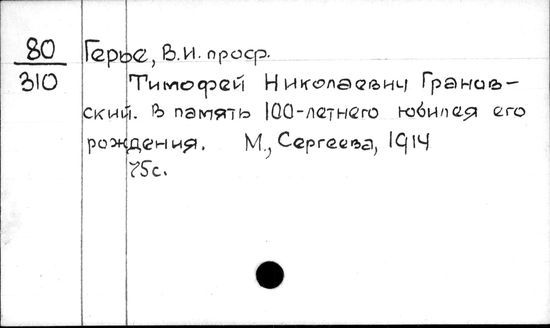 80 Герье, В.И. проф.
310 Тимофей Николаевич Гранов-
ский. В память 100-летнего юбилея его
рождения. М., Сергеева, 1914
75с.